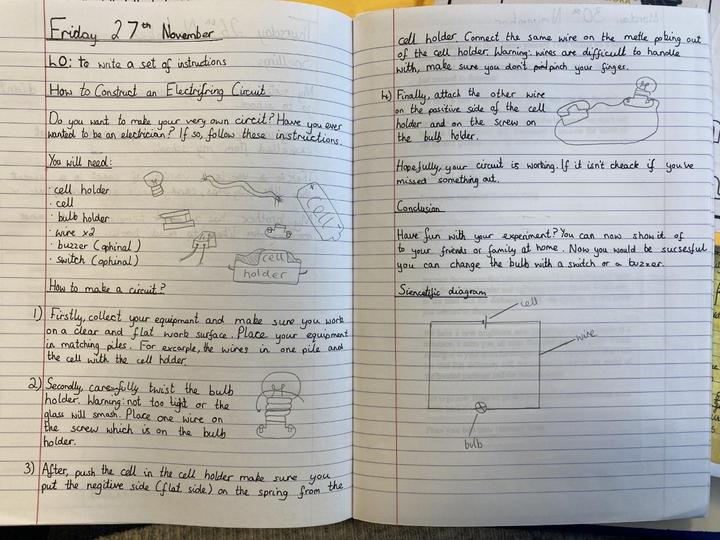 Friday 27th November
LO: to write a set of instructions
How to Construct an Electrifying Circuit
Do you want to make your very own circit? Have you ever
wanted to be an electrician? If so, follow these instructions.
You will need:
· cell holder
· cell
· bulb holder
· wire x2
· buzzer (ophinal)
· switch (ophinal)
cell
cell
holder
How to make a circuit?
1) Firstly, collect your equipment and make sure you work
on a clear and flat work surface. Place your equipment
in matching piles. For excarple, the wires in one pile and
the cell with the cell holder.
2) Secondly, carefully twist the bulb
holder. Warning: not too tight or the
glass will smash. Place one wire on
the screw which is on the bulb
holder.
3) After, push the cell in the cell holder make sure you
put the negitive side (flat side) on the spring from the
cell holder. Connect the same wire on the metle poking out
of the cell holder. Warning: wires are difficult to handle
with, make sure you don't pinch your finger.
4) Finally, attach the other wire
on the positive side of the cell
holder and on the screw on
the bulb holder.
Hopefully, your circuit is working. If it isn't cheack if you've
missed something out.
Conclusion
Have fun with your experiment? You can now show it of
to your friends or family at home. Now you would be sucsesful
you can change the bulb with a switch or a buzzer.
Siencetific diagram
cell
wire
bulb